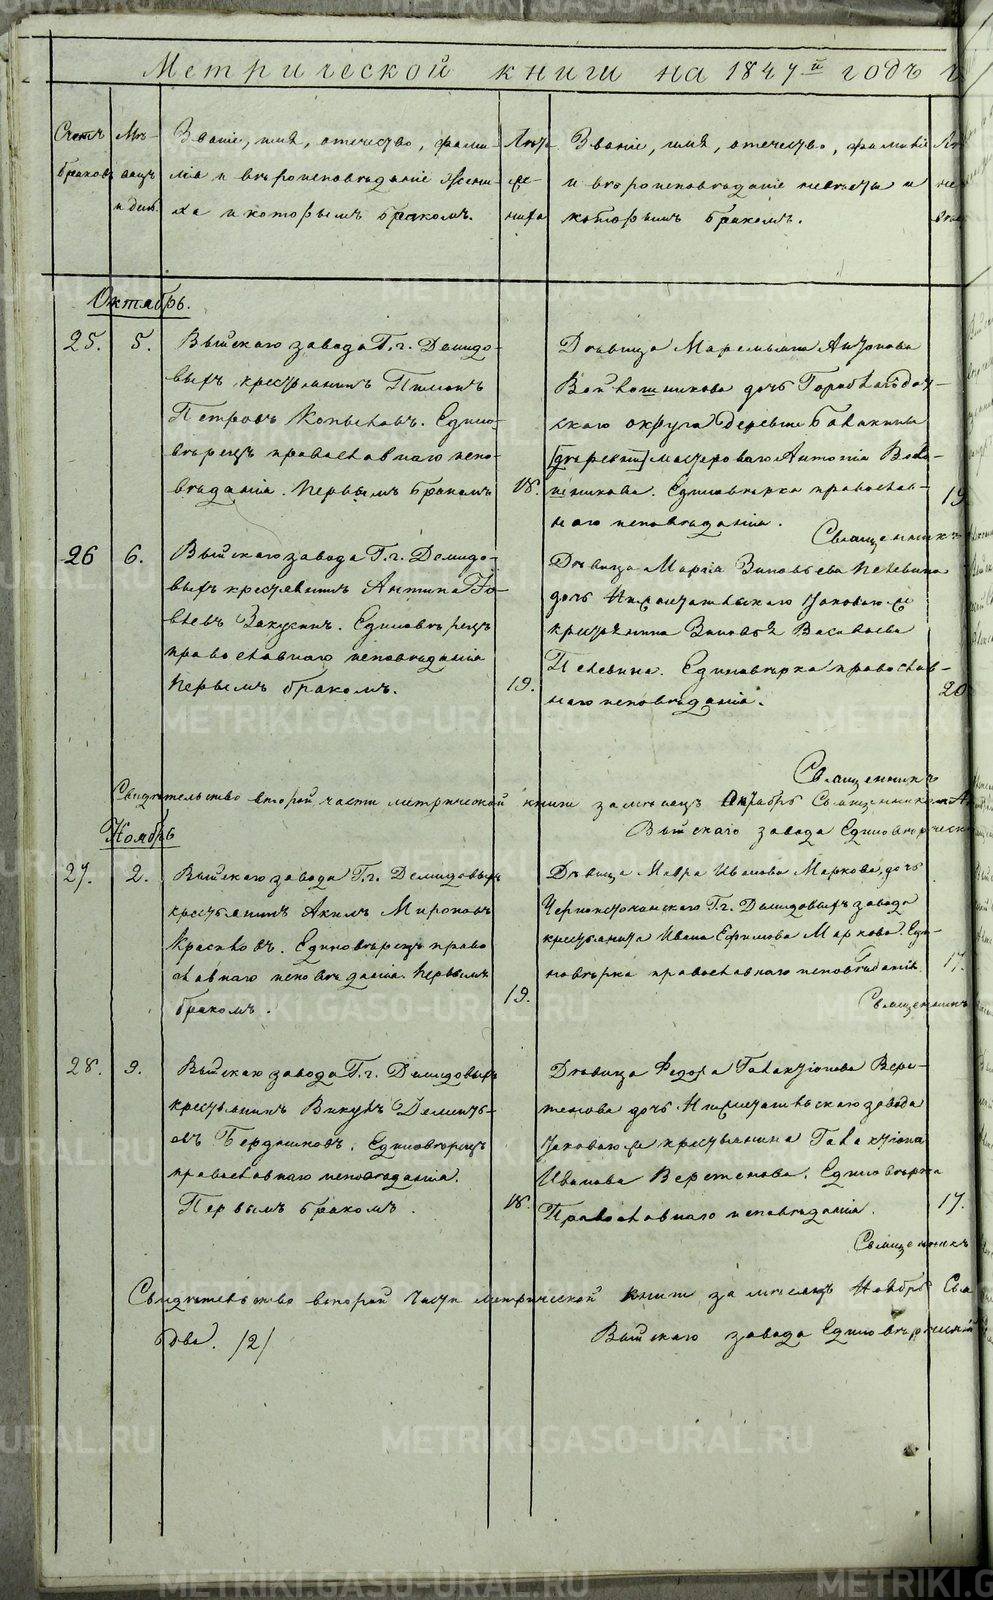 Метрической книги на 1847й годъ
Счетъ браковъ
Мѣсяцъ и день
Званіе, имя, отечество, фамилія и вѣроисповѣданіе жениха и которымъ бракомъ.
Лѣта жениха
Званіе, имя, отечество, фамилія и вѣроисповѣданіе невѣсты и которымъ бракомъ.
Октябрь.
25. 5.
Выйскаго завода Г.г. Демидо-
выхъ крестьянинъ Пименъ
Петровъ Копысовъ. Едино-
вѣрецъ православнаго испо-
вѣданія. Первымъ бракомъ
18.
Дѣвица Маремьяна Антонова
дочь Горноблагодат-
скаго округа деревни Балакиной
мастероваго Антонія
Единовѣрка православ-
наго исповѣданія.
19
Священникъ
26 6.
Выйскаго завода Г.г. Демидо-
выхъ крестьянинъ Антипа Іо-
влевъ Закусинъ. Единовѣрецъ
православнаго исповѣданія
Первымъ бракомъ.
19.
Дѣвица Марія Зиновьева Пелевина
дочь Нижнетагильскаго
крестьянина Зиновья Васильева
Пелевина. Единовѣрка православ-
наго исповѣданія.
20
Священникъ
Свидѣтельство второй части метрической книги за мѣсяцъ Октябрь Священникомъ
Выйскаго завода Единовѣрческ
Ноябрь
27. 2.
Выйскаго завода Г.г. Демидовыхъ
крестьянинъ Акимъ Мироновъ
Красновъ. Единовѣрецъ право
славнаго исповѣданія. Первымъ
бракомъ.
19.
Дѣвица Мавра Иванова Маркова, дочь
Черноисточинскаго Г.г. Демидовыхъ завода
крестьянина Ивана Ефимова Маркова. Еди-
новѣрка православнаго исповѣданія.
17.
Священникъ
28. 9.
Выйскаго завода Г.г. Демидовыхъ
крестьянинъ Викулъ Дементь-
евъ Бердниковъ. Единовѣрецъ
православнаго исповѣданія.
Первымъ бракомъ.
18.
Дѣвица Федора Галактіонова Вере-
тенова дочь Нижнетагильскаго завода
крестьянина Галактіона
Иванова Веретенова. Единовѣрка
Православнаго исповѣданія.
17.
Священникъ
Свидѣтельство второй части метрической книги за мѣсяцъ Ноябрь Свя
два. /2/
Выйскаго завода Единовѣрческой
METRIKI.GASO-URAL.RU